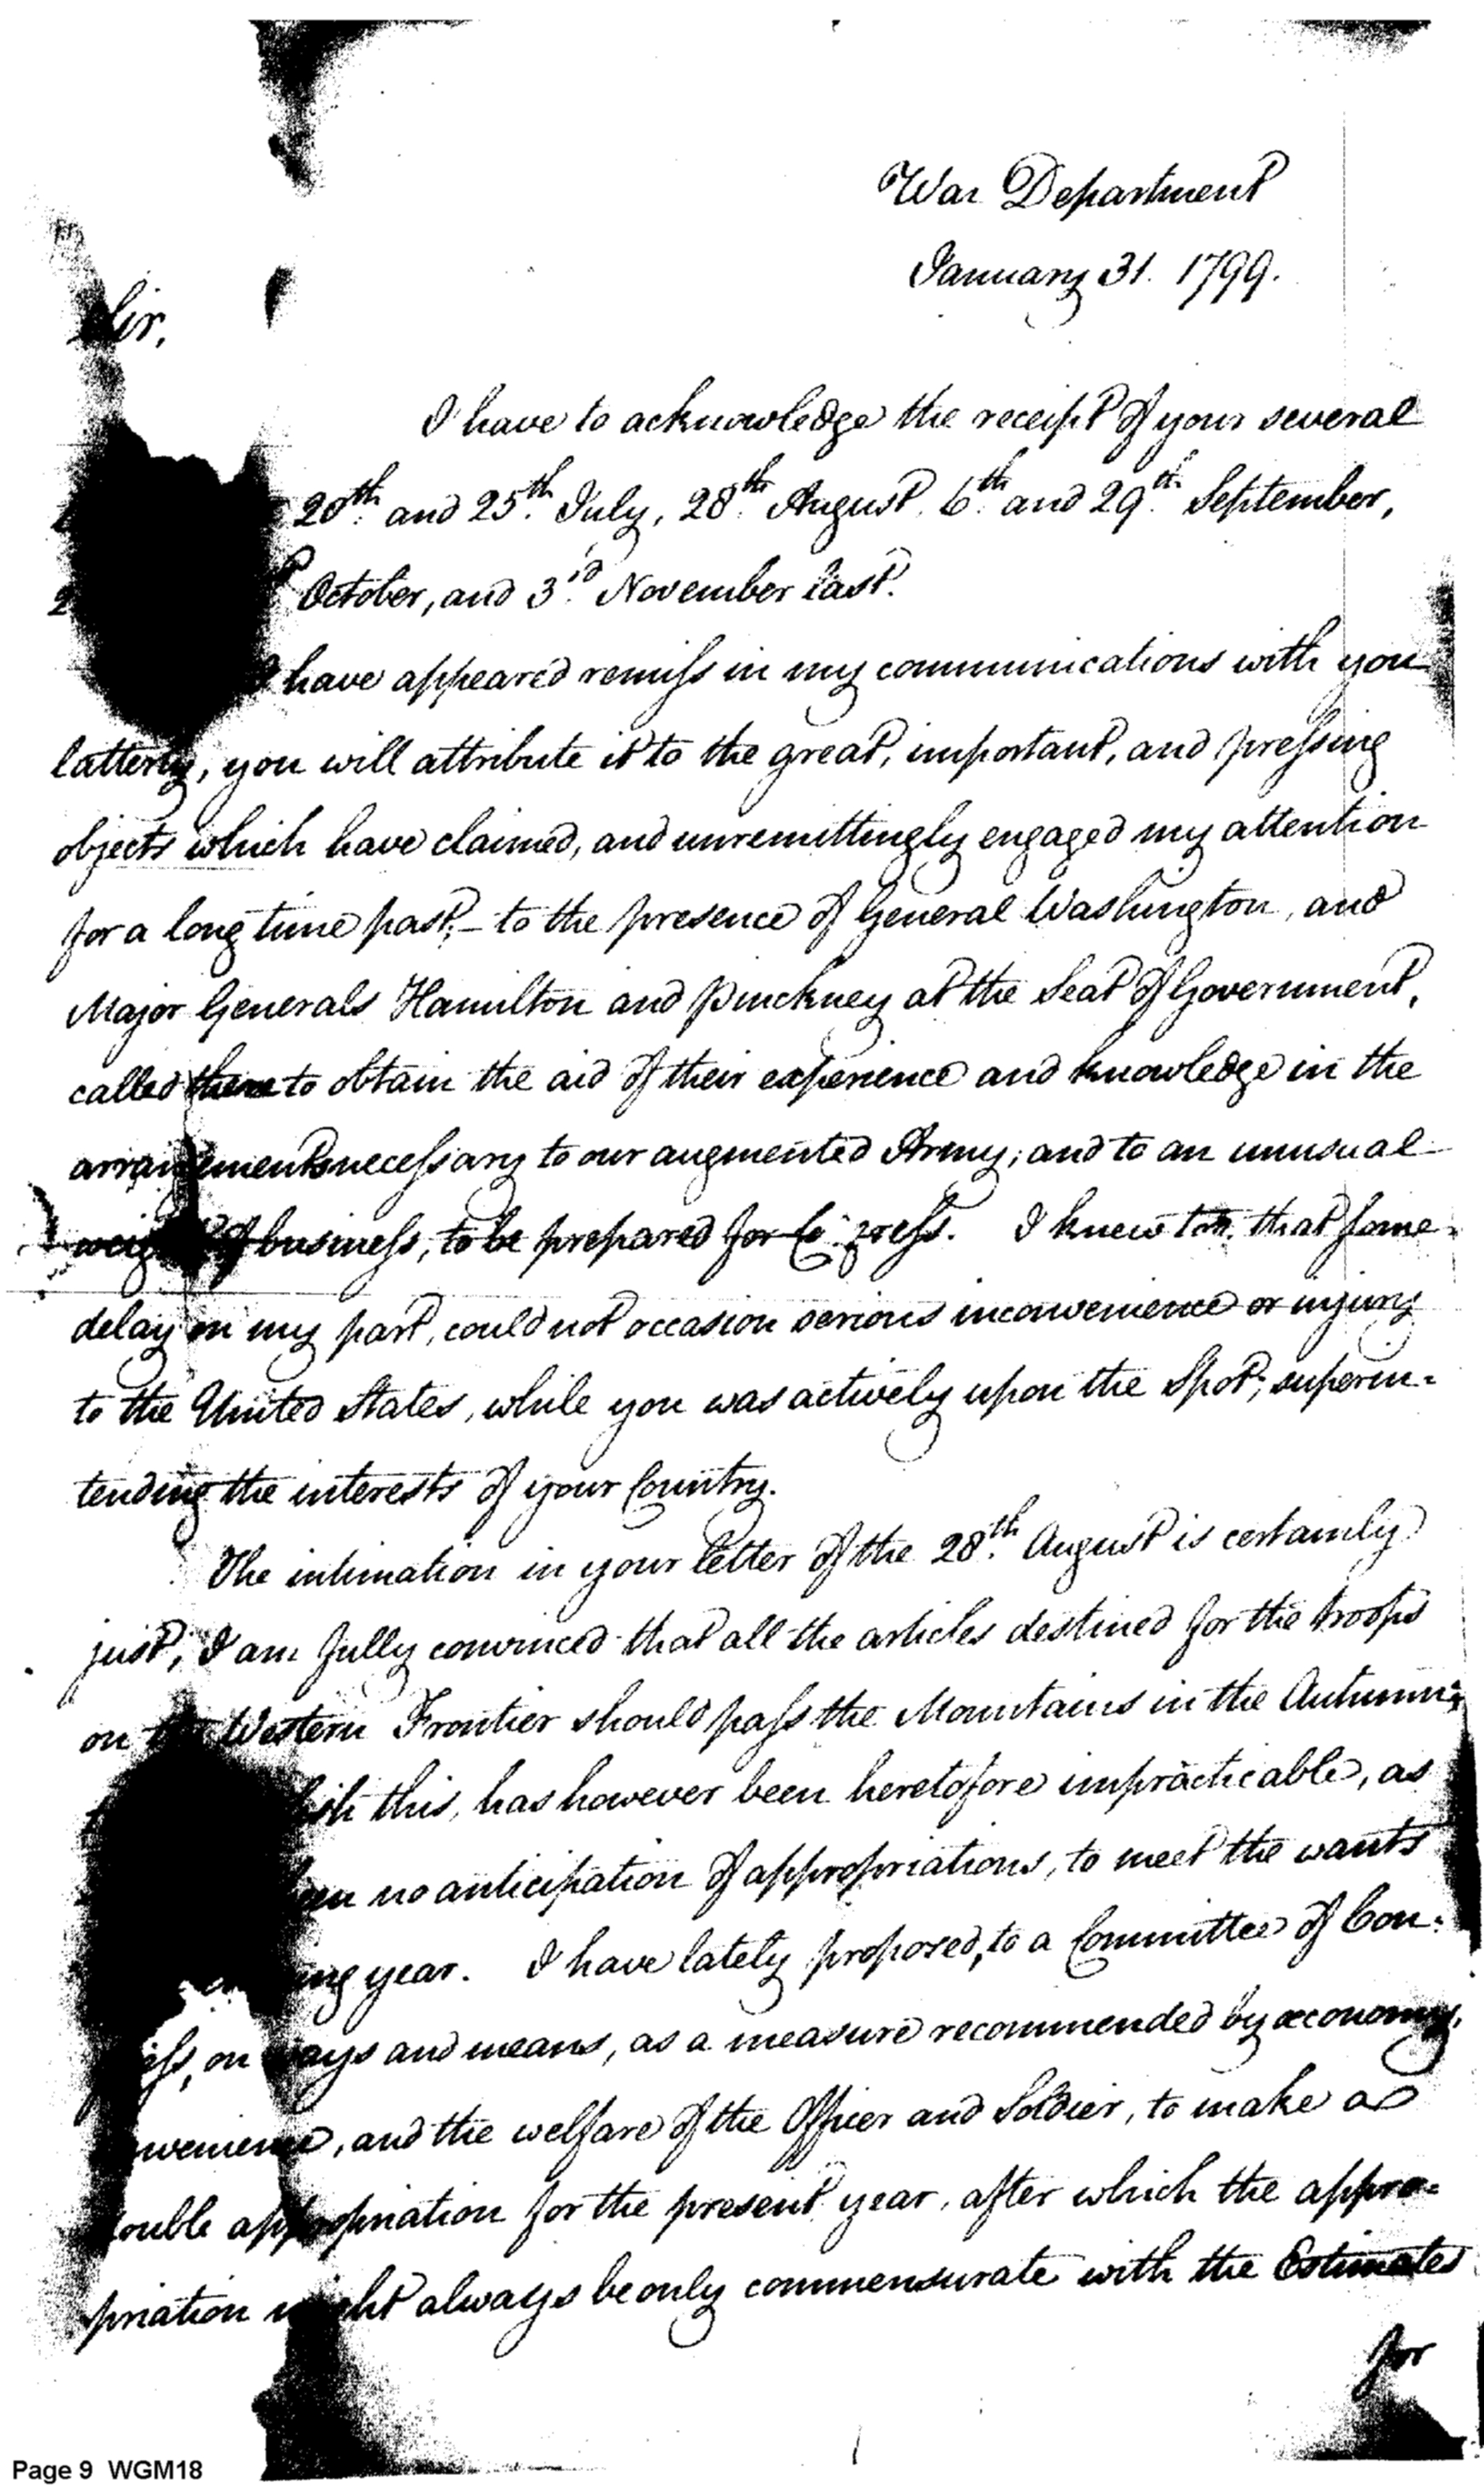 War Department
January 31. 1799.
Sir,
I have to acknowledge the receipt of your several
20th. and 25th. July, 28th. August. 6th. and 29th. September,
October, and 3rd. November last.
I have appeared remiss in my communications with you
latterly, you will attribute it to the great, important, and pressing
objects which have claimed, and unremittingly engaged my attention
for a long time past;– to the presence of General Washington, and
Major Generals Hamilton and Pinckney at the Seat of Government,
called there to obtain the aid of their experience and knowledge in the
arrangements necessary to our augmented Army; and to an unusual
weight of business, to be prepared for Congress. I knew too, that some
delay on my part, could not occasion serious inconvenience or injury
to the United States, while you was actively upon the Spot; superin=
tending the interests of your Country.
The intimation in your letter of the 28th. August is certainly
just; I am fully convinced that all the articles destined for the troops
on the Western Frontier should pass the Mountains in the Autumn;
this, has however been heretofore impracticable, as
been no anticipation of appropriations, to meet the wants
year. I have lately proposed, to a Committee of Con=
=gress, on ways and means, as a measure recommended by œconomy,
convenience, and the welfare of the Officer and Soldier, to make a
double appropriation for the present year, after which the appro=
priation might always be only commensurate with the Estimates
for
Page 9 WGM18